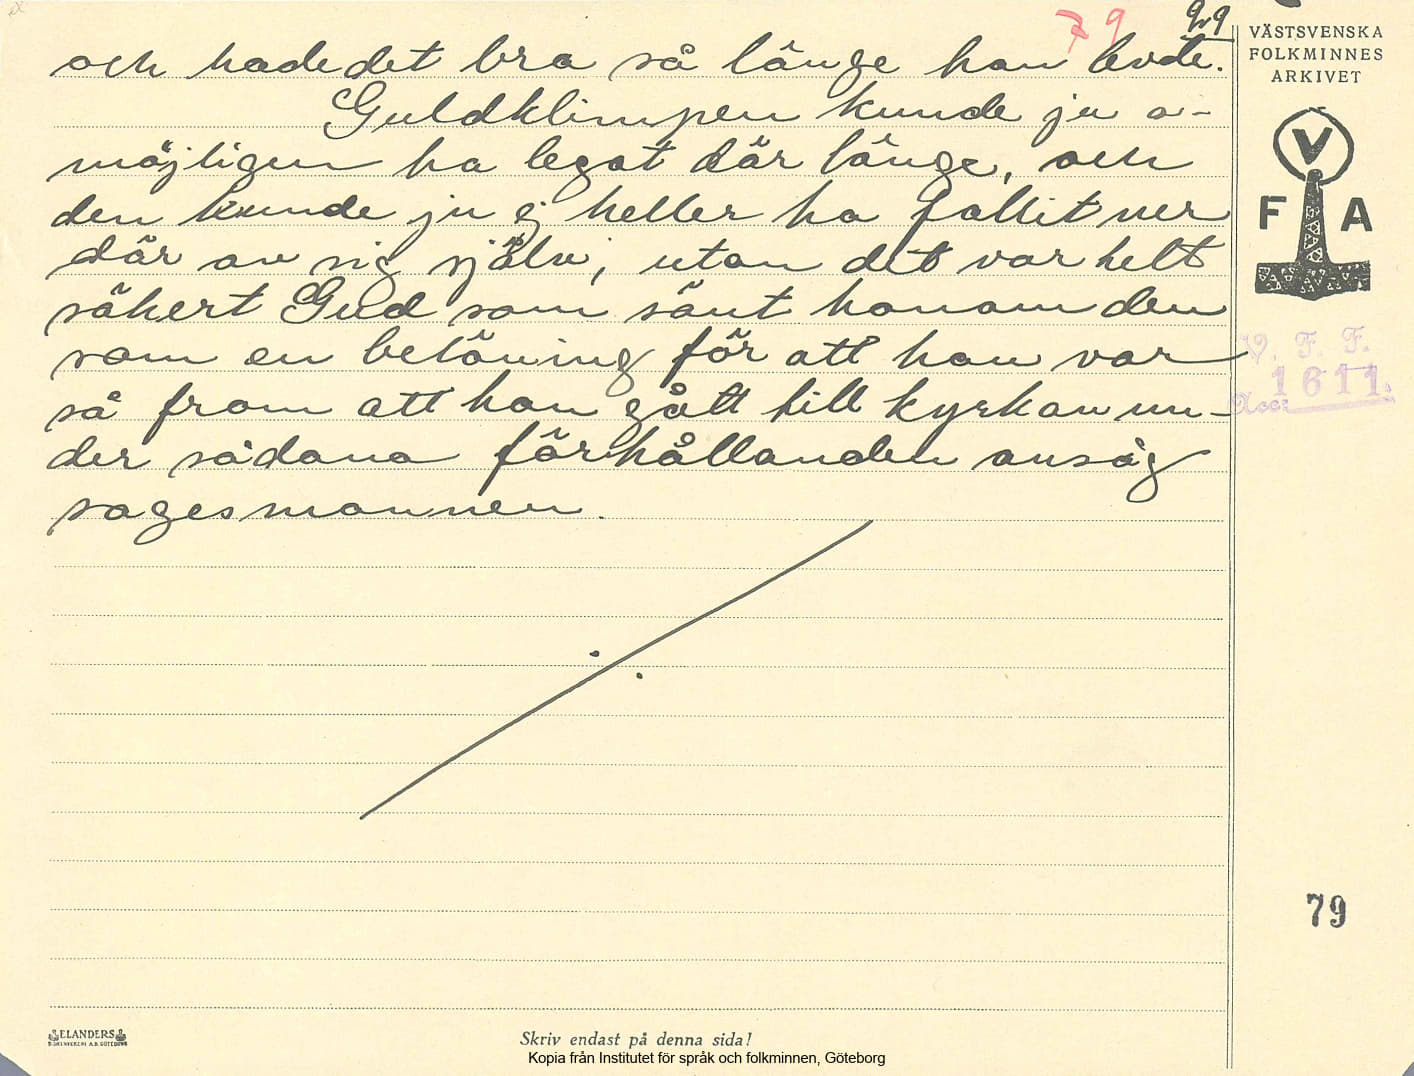 79
99
och hade det bra så länge han levde.
Guldklimpen kunde ju o-
möjligen ha legat där länge, och
den kunde ju ej heller ha fallit ner
där av sig själv, utan det var helt
säkert Gud som sänt honom den
som en belöning för att han var
så from att han gått till kyrkan un-
der sådana förhållanden ansåg
sagesmannen.
VÄSTSVENSKA
FOLKMINNES
ARKIVET
V
F A
V. F. F.
Acc: 1611.
79
ELANDERS
Skriv endast på denna sida!
Kopia från Institutet för språk och folkminnen, Göteborg